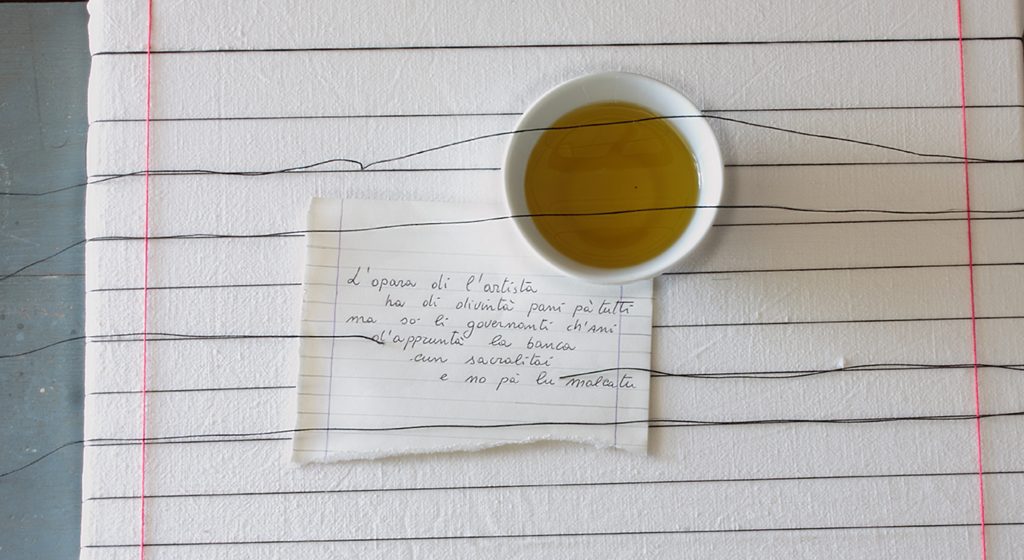 L'opara di l'artista
ha di divintà pani pà tutti
ma so' li governanti ch'ani
d'appruntà la banca
cun sacralitai
e no pà lu malcatu